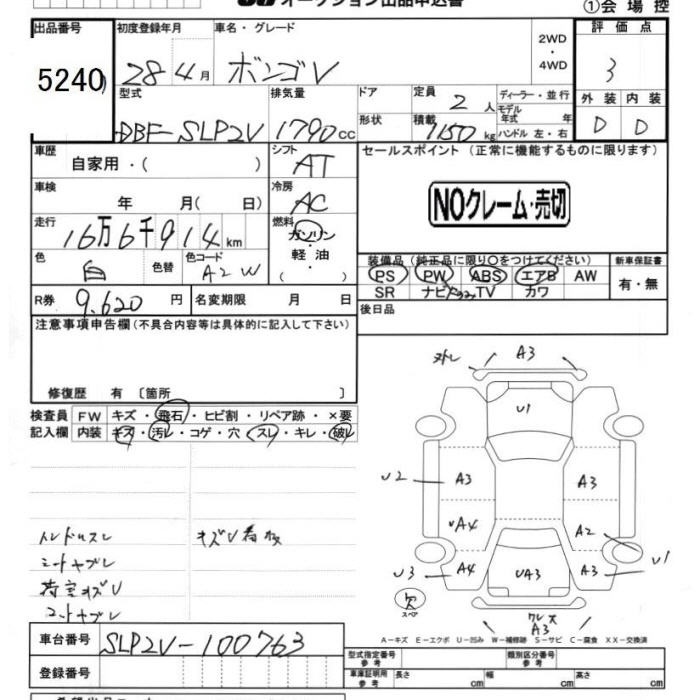 オークション出品申込書
①会場控
出品番号 5240
初度登録年月 28年4月
車名・グレード ボンゴV
2WD・4WD
評価点 3
型式 DBF-SLP2V
排気量 1790cc
ドア 形状
定員 2人
積載 1150kg
ディーラー・並行
モデル年式 年
ハンドル 左・右
外装 D
内装 D
車歴 自家用・( )
シフト AT
セールスポイント (正常に機能するものに限ります)
車検 年 月( 日)
冷房 AC
NOクレーム・売切
走行 16万6千914km
燃料 ガソリン・軽油・( )
色 白
色替
色コード A2W
装備品 (純正品に限り○をつけてください)
新車保証書
PS PW ABS エアB AW
SR ナビ TV カワ
有・無
R券 9,620円
名変期限 月 日
後日品
注意事項申告欄(不具合内容等は具体的に記入して下さい)
修復歴 有 〔箇所 〕
検査員記入欄
FW キズ・飛石・ヒビ割・リペア跡・×要
内装 キズ・汚レ・コゲ・穴・スレ・キレ・破レ
キズV看板
シートヤブレ
荷室キズV
外し A3
U1
U2 A3 A3
UA4 A2
U3 A4 UA3 A3 U1
欠 スペア
A3
A-キズ E-エクボ U-凹み W-補修跡 S-サビ C-腐食 XX-交換済
車台番号 SLP2V-100763
登録番号
型式指定番号 参考
類別区分番号 参考
車庫証明用 参考 長さ cm 幅 cm 高さ cm